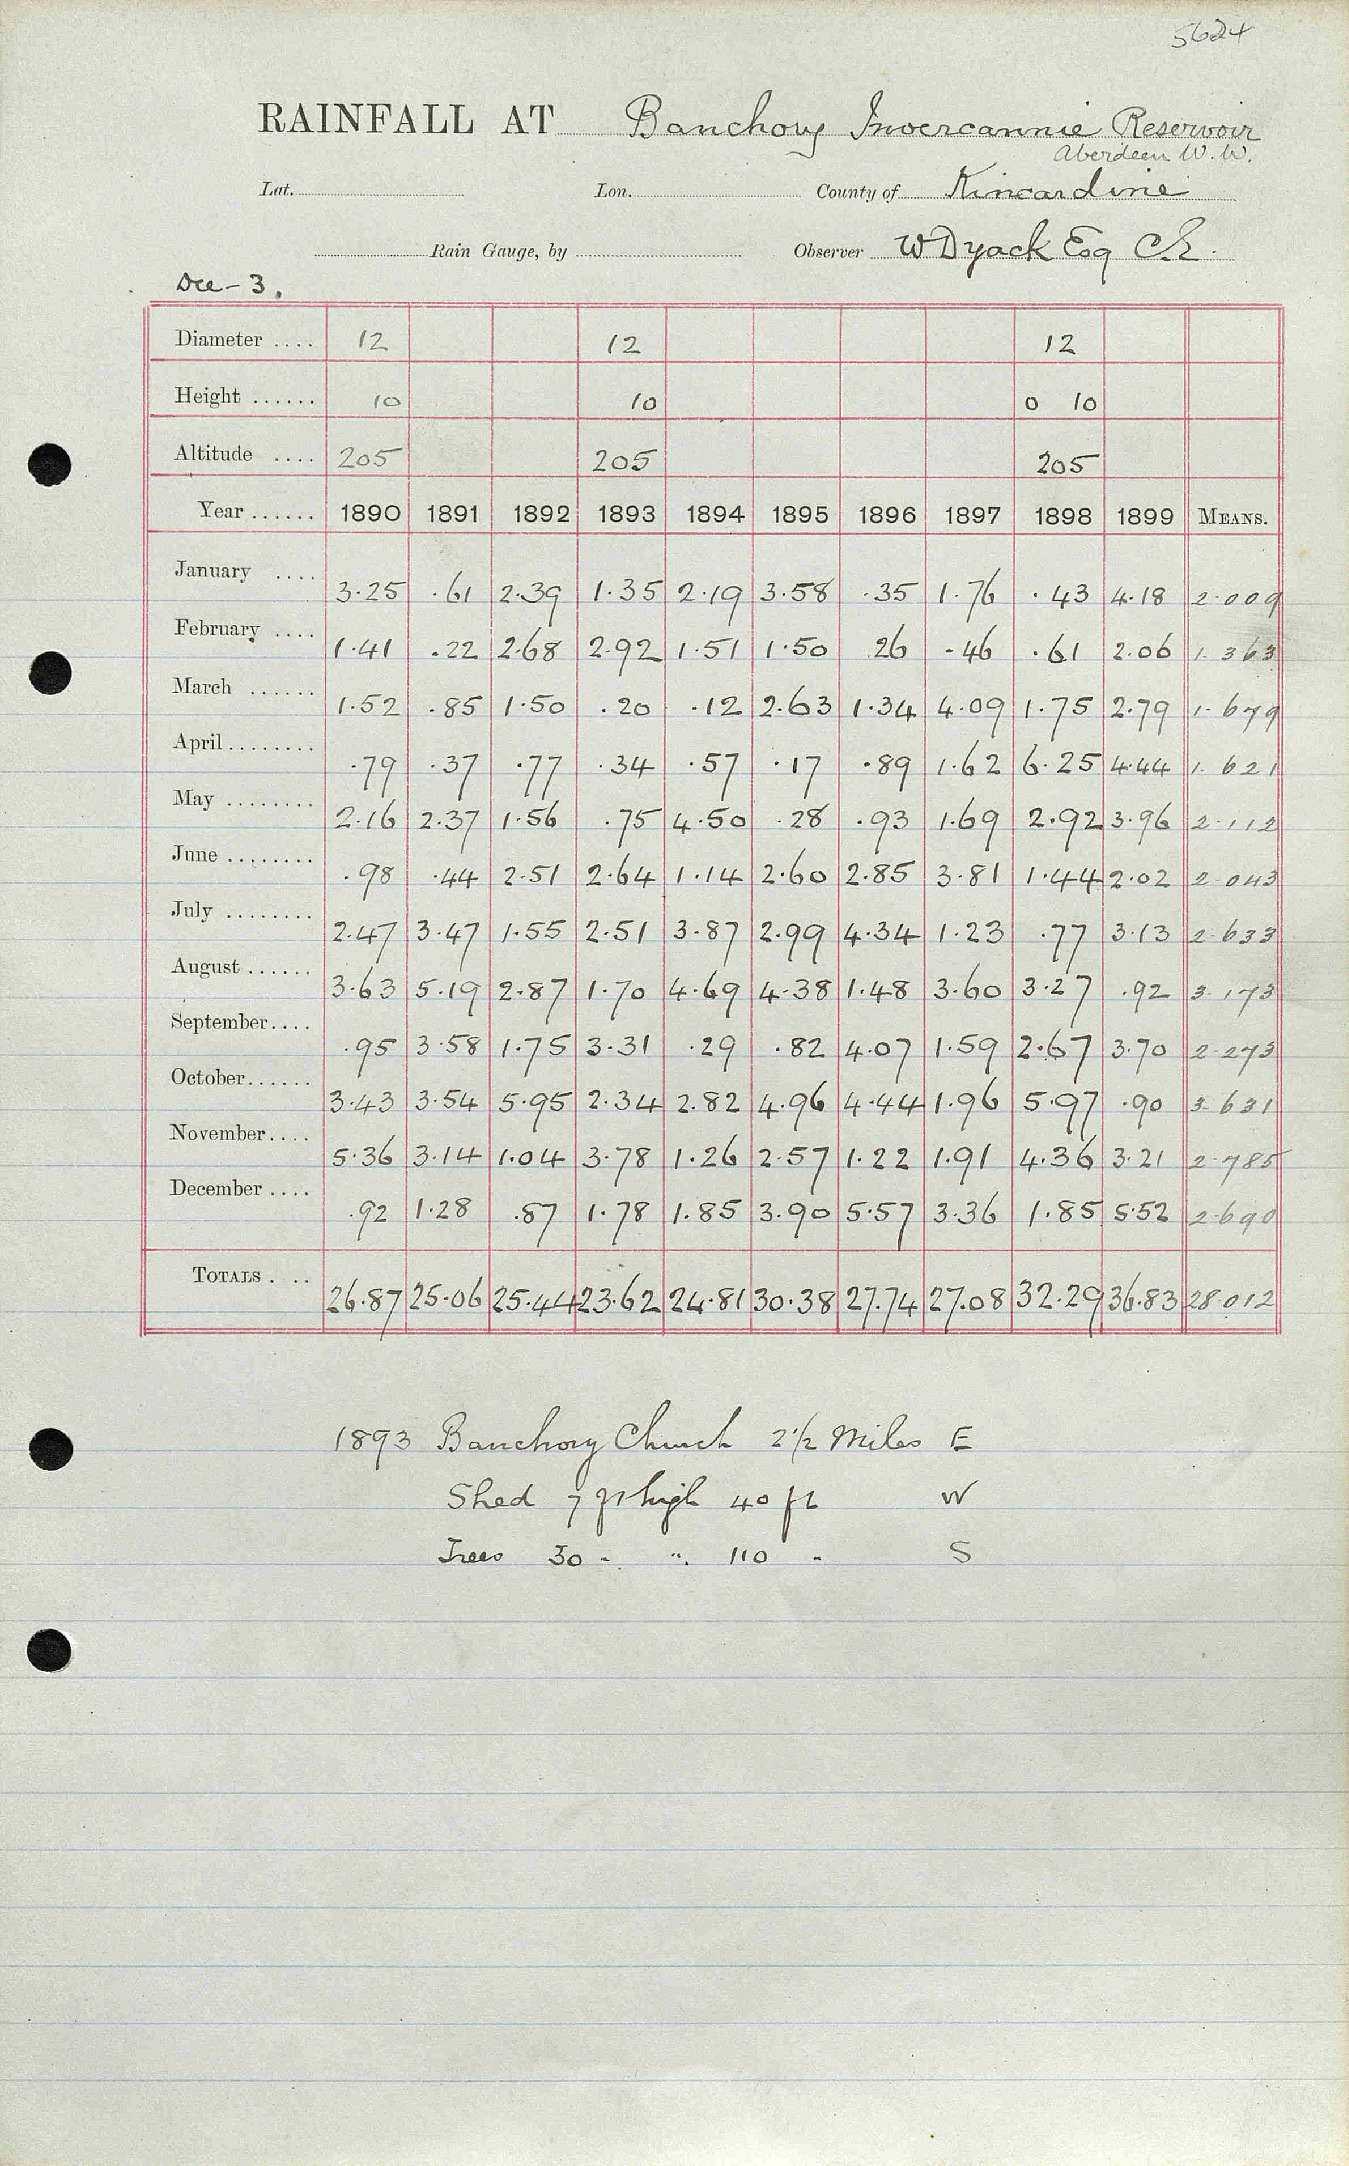 5624
RAINFALL AT Banchory Invercannie Reservoir
Aberdeen W.W.
Lat. Lon. County of Kincardine
Rain Gauge, by Observer W Dyack Esq C.E.
Dee - 3.
Diameter .... 12 12 12
Height ...... 10 10 0 10
Altitude .... 205 205 205
Year ...... 1890 1891 1892 1893 1894 1895 1896 1897 1898 1899 MEANS.
January .... 3.25 .61 2.39 1.35 2.19 3.58 .35 1.76 .43 4.18 2.009
February .... 1.41 .22 2.68 2.92 1.51 1.50 26 .46 .61 2.06 1.363
March ...... 1.52 .85 1.50 .20 .12 2.63 1.34 4.09 1.75 2.79 1.679
April ........ .79 .37 .77 .34 .57 .17 .89 1.62 6.25 4.44 1.621
May ........ 2.16 2.37 1.56 .75 4.50 .28 .93 1.69 2.92 3.96 2.112
June ........ .98 .44 2.51 2.64 1.14 2.60 2.85 3.81 1.44 2.02 2.043
July ........ 2.47 3.47 1.55 2.51 3.87 2.99 4.34 1.23 .77 3.13 2.633
August ...... 3.63 5.19 2.87 1.70 4.69 4.38 1.48 3.60 3.27 .92 3.173
September .... .95 3.58 1.75 3.31 .29 .82 4.07 1.59 2.67 3.70 2.273
October ...... 3.43 3.54 5.95 2.34 2.82 4.96 4.44 1.96 5.97 .90 3.631
November .... 5.36 3.14 1.04 3.78 1.26 2.57 1.22 1.91 4.36 3.21 2.785
December .... .92 1.28 .87 1.78 1.85 3.90 5.57 3.36 1.85 5.52 2.690
TOTALS . .. 26.87 25.06 25.44 23.62 24.81 30.38 27.74 27.08 32.29 36.83 28.012
1893 Banchory Church 2 1/2 Miles E
Shed 7 ft high 40 ft W
Trees 30 " " 110 " S